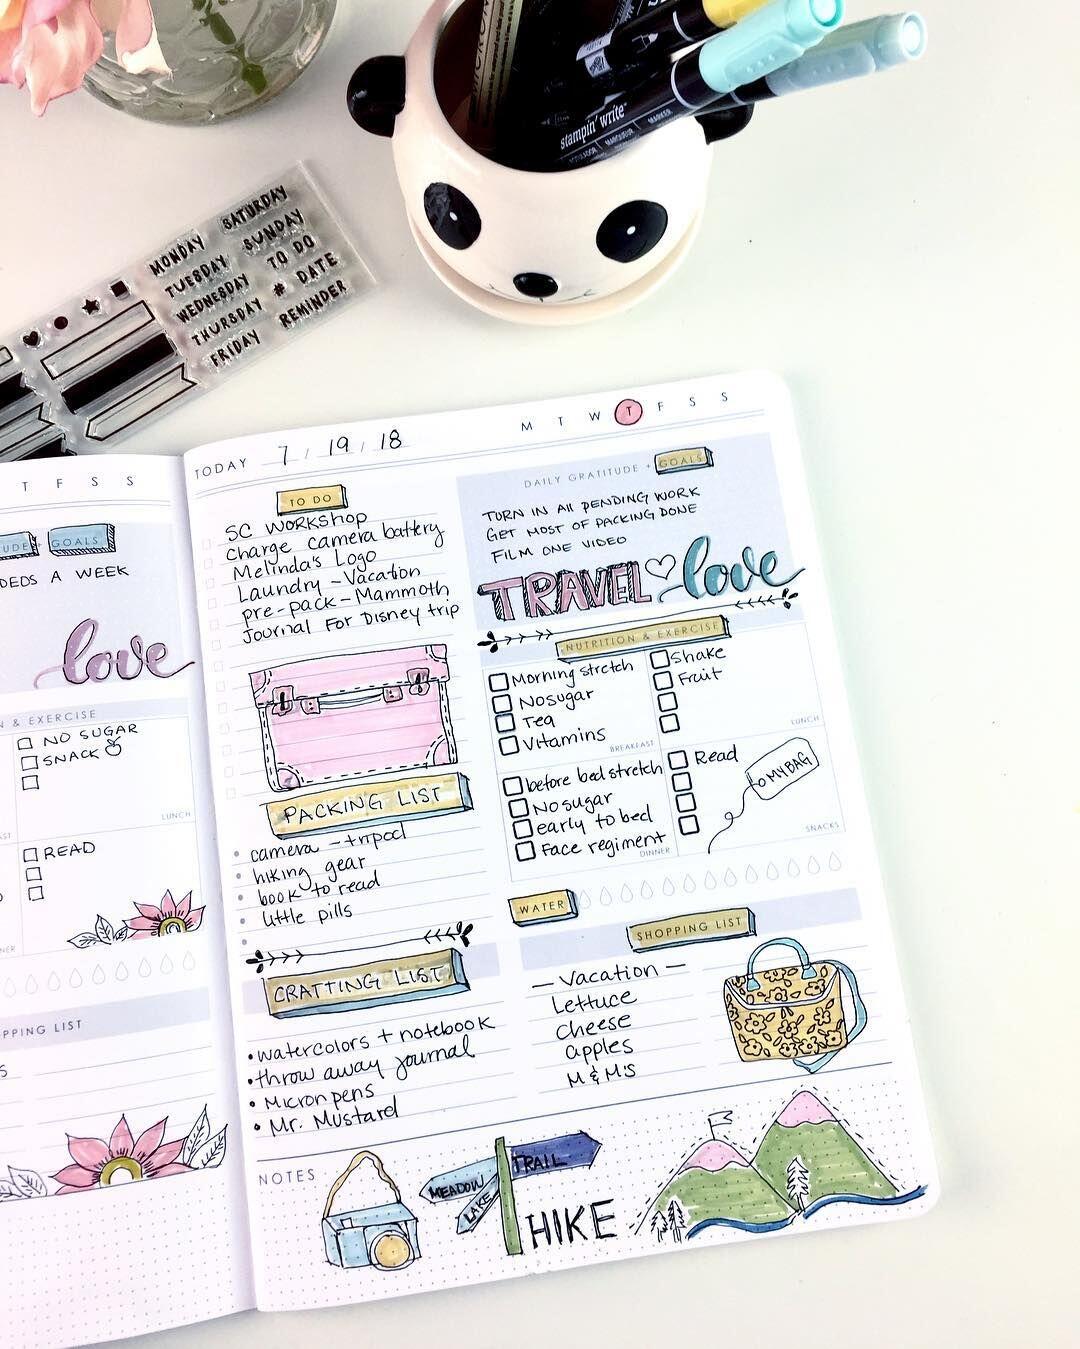 MICRON
stampin' write™
MARQUEUR
MARKER
MONDAY SATURDAY
TUESDAY SUNDAY
WEDNESDAY TO DO
THURSDAY # DATE
FRIDAY REMINDER
T F S S
GOALS
DEDS A WEEK
love
& EXERCISE
NO SUGAR
SNACK
LUNCH
READ
PPING LIST
TODAY 7 / 19 / 18
M T W T F S S
TO DO
SC WORKSHOP
Charge camera battery
Melinda's Logo
Laundry - Vacation
pre-pack - Mammoth
Journal For Disney trip
PACKING LIST
camera - tripod
hiking gear
book to read
little pills
CRATTING LIST
• watercolors + notebook
• throw away journal
• Micron pens
• Mr. Mustard
DAILY GRATITUDE + GOALS
TURN IN All PENDING WORK
GET MOST OF PACKING DONE
FILM ONE VIDEO
TRAVEL love
NUTRITION & EXERCISE
Morning stretch
No sugar
Tea
Vitamins
BREAKFAST
Shake
Fruit
LUNCH
before bed stretch
No sugar
early to bed
Face regiment
DINNER
Read
MY BAG
SNACKS
WATER
SHOPPING LIST
— Vacation —
Lettuce
Cheese
apples
M & M'S
NOTES
MEADOW
LAKE
TRAIL
HIKE